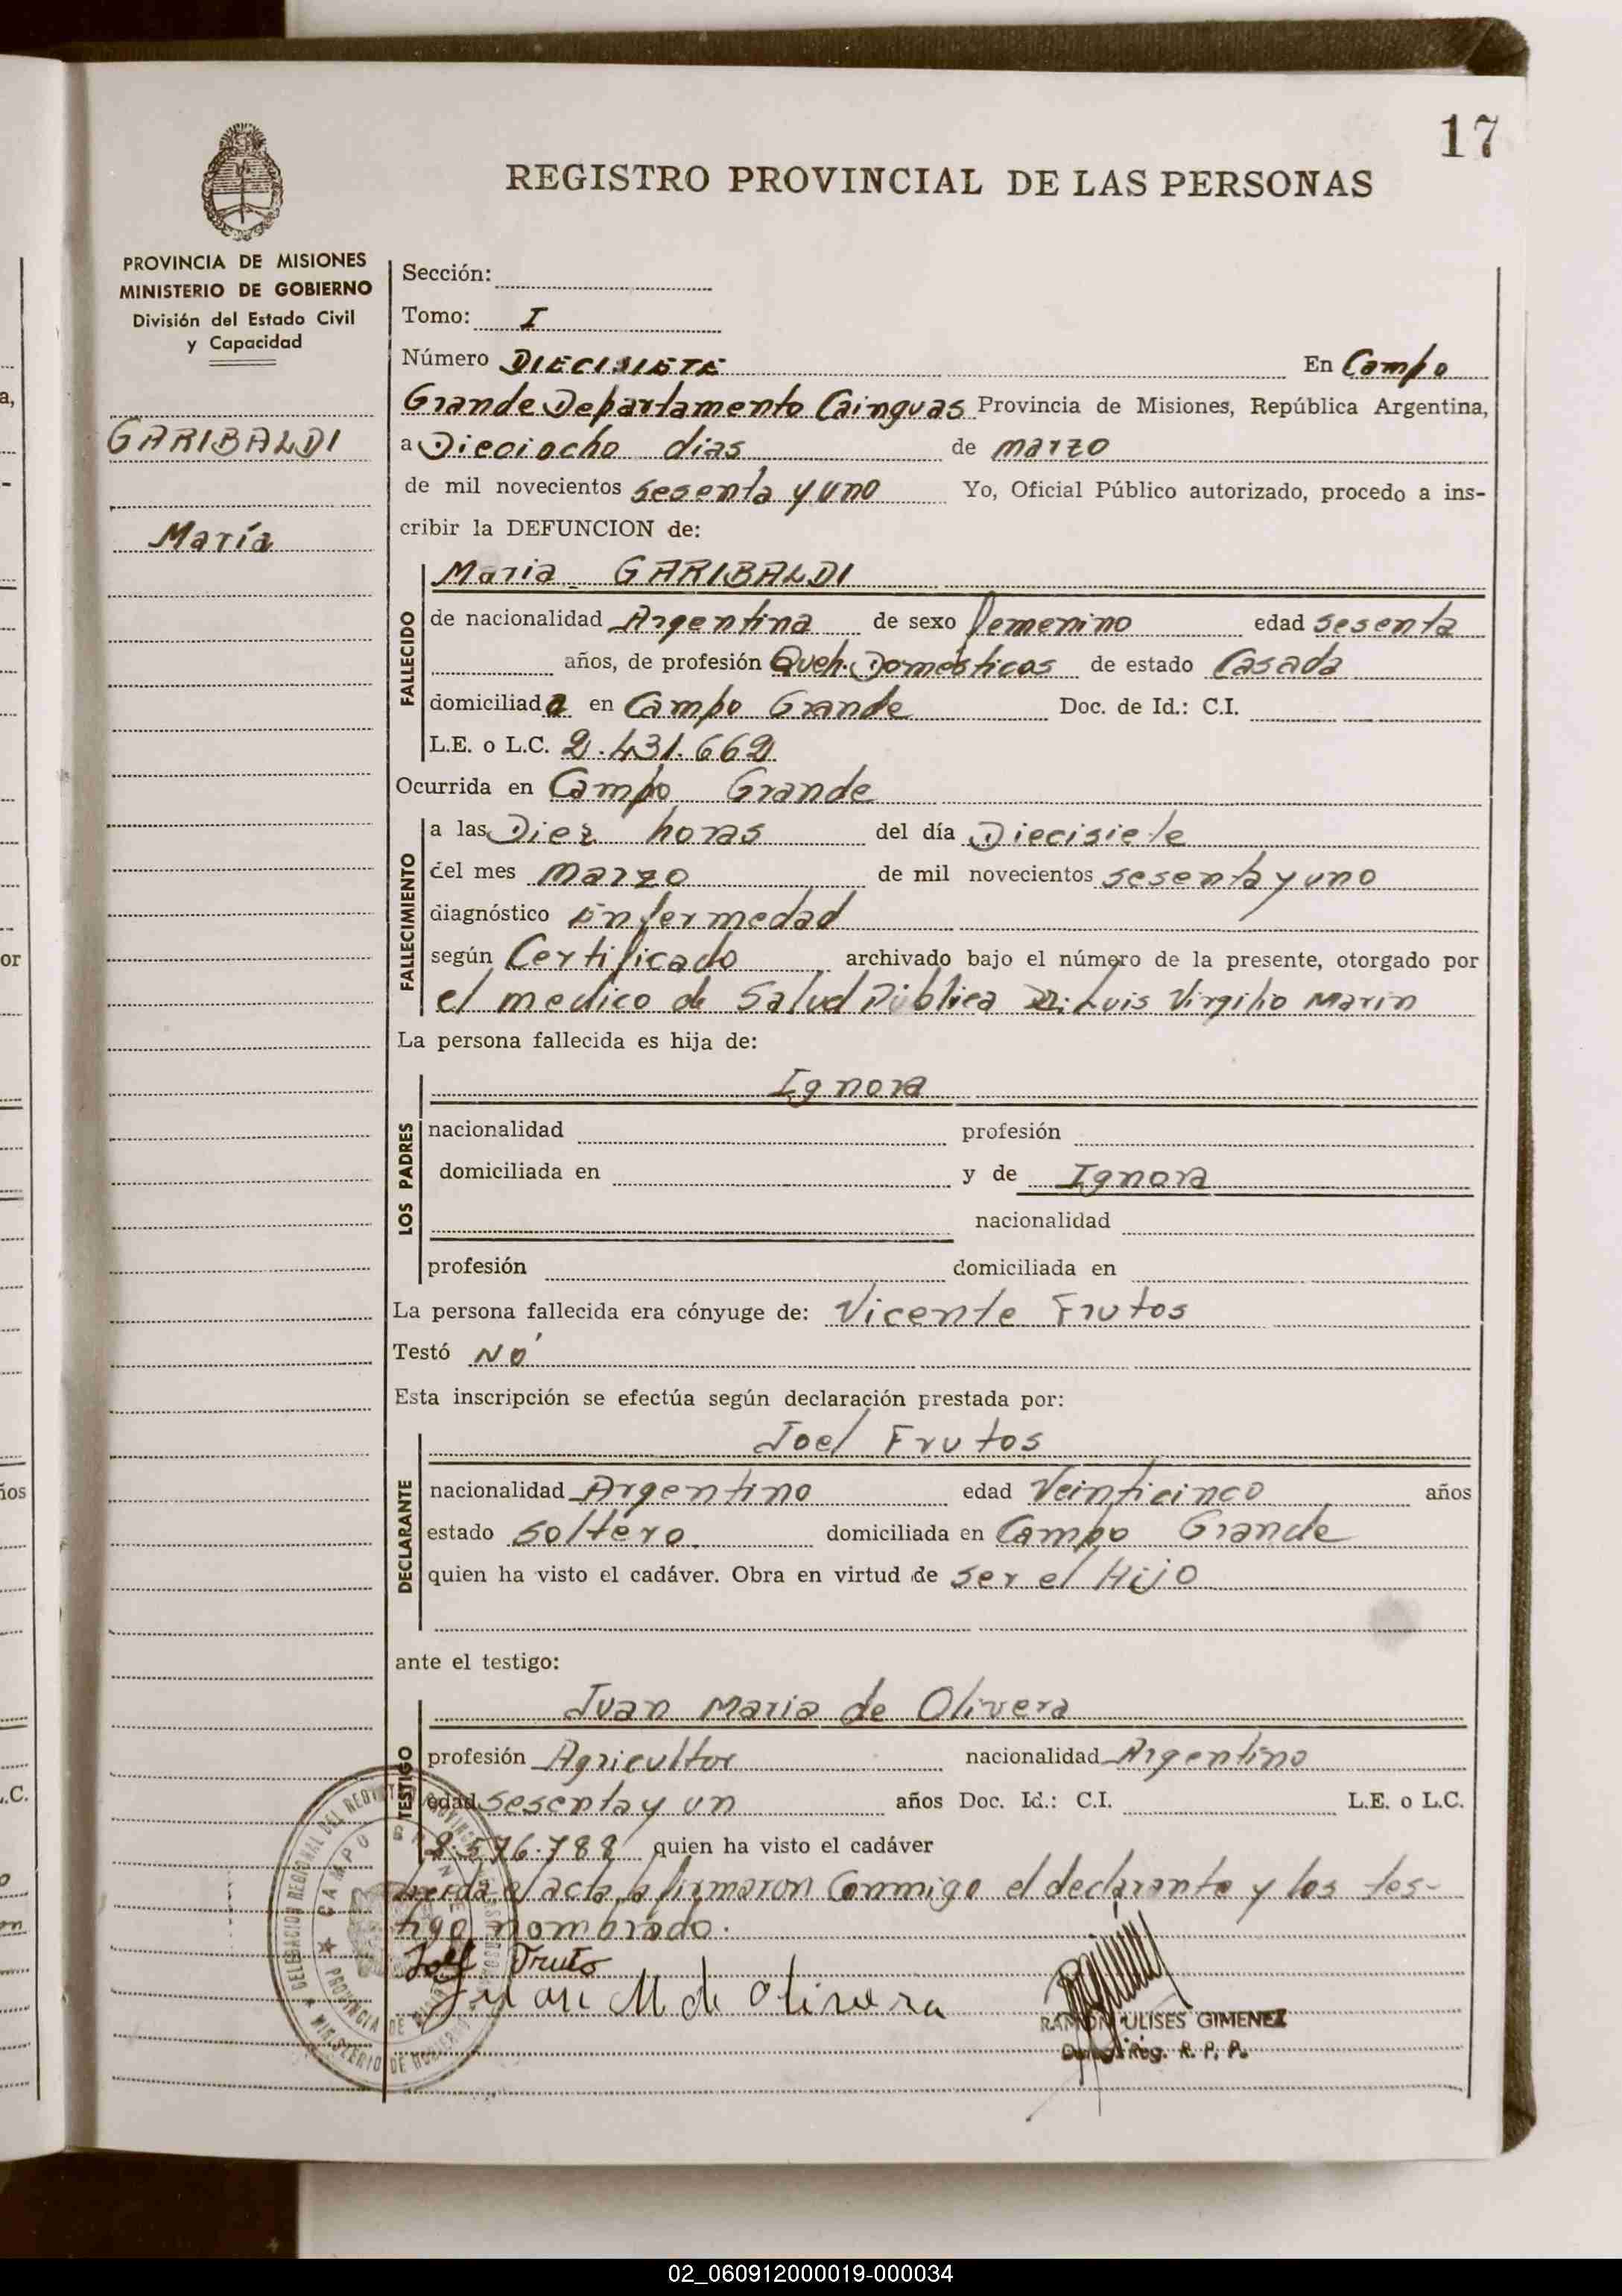 17
REGISTRO PROVINCIAL DE LAS PERSONAS
PROVINCIA DE MISIONES
MINISTERIO DE GOBIERNO
División del Estado Civil
y Capacidad
GARIBALDI
María
Sección:
Tomo: I
Número DIECISIETE En Campo
Grande Departamento Cainguas Provincia de Misiones, República Argentina,
a Dieciocho dias de marzo
de mil novecientos sesenta y uno Yo, Oficial Público autorizado, procedo a ins-
cribir la DEFUNCION de:
FALLECIDO
Maria GARIBALDI
de nacionalidad Argentina de sexo femenino edad sesenta
años, de profesión Queh. Domésticos de estado Casada
domiciliada en Campo Grande Doc. de Id.: C.I.
L.E. o L.C. 2.431.662
Ocurrida en Campo Grande
FALLECIMIENTO
a las Diez horas del día Diecisiete
del mes Marzo de mil novecientos sesenta y uno
diagnóstico Enfermedad
según Certificado archivado bajo el número de la presente, otorgado por
el medico de Salud Pública Dr. Luis Virgilio Marin
La persona fallecida es hija de:
LOS PADRES
Ignora
nacionalidad profesión
domiciliada en y de Ignora
nacionalidad
profesión domiciliada en
La persona fallecida era cónyuge de: Vicente Frutos
Testó NÓ
Esta inscripción se efectúa según declaración prestada por:
DECLARANTE
Joel Frutos
nacionalidad Argentino edad Veinticinco años
estado soltero. domiciliada en Campo Grande
quien ha visto el cadáver. Obra en virtud de ser el Hijo
ante el testigo:
TESTIGO
Juan Maria de Olivera
profesión Agricultor nacionalidad Argentino
edad sesenta y un años Doc. Id.: C.I. L.E. o L.C.
2.576.788 quien ha visto el cadáver
Leida el acta, la firmaron Conmigo el declarante y los tes-
tigo nombrado.
Joel Fruto
Juan M de Olivera
RAMON ULISES GIMENEZ
Reg. R. P. P.
DELEGACION REGIONAL DEL REGISTRO PROVINCIAL
MINISTERIO DE GOBIERNO
CAMPO GRANDE
PROVINCIA DE MISIONES
02_060912000019-000034